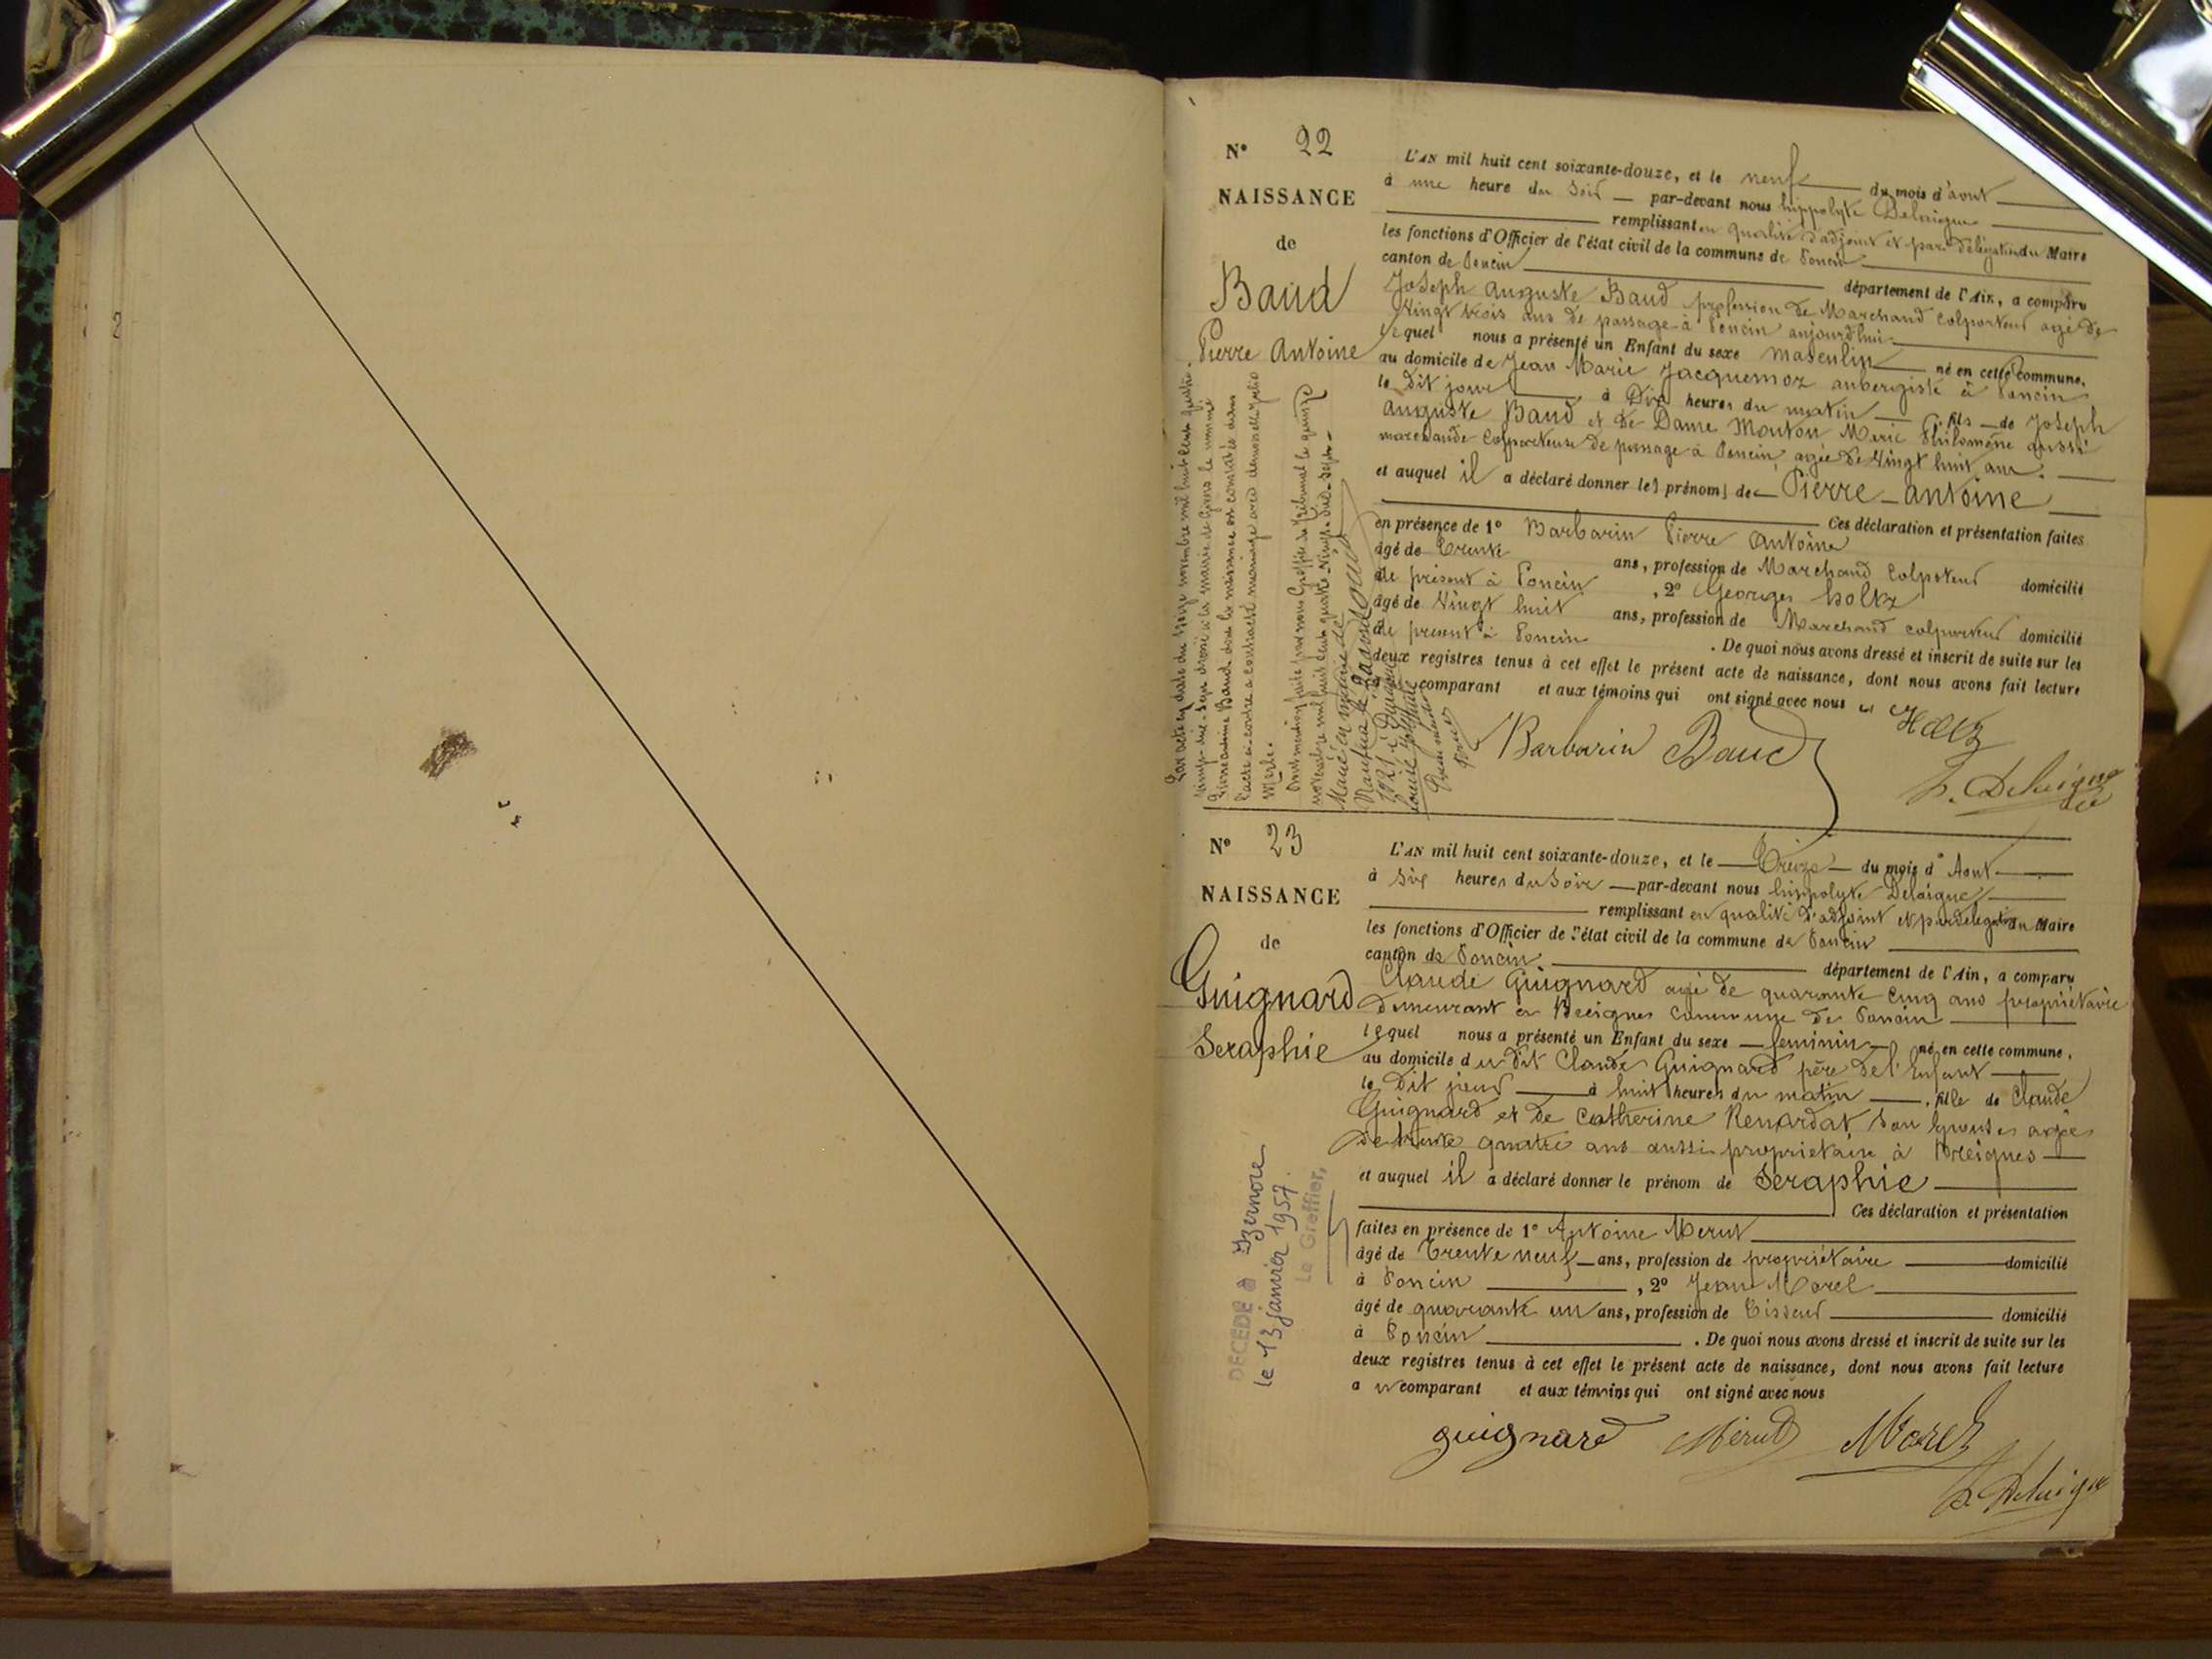 N° 22
NAISSANCE
de
Baud
Pierre Antoine
L'AN mil huit cent soixante-douze, et le neuf du mois d'aout
à une heure du soir par-devant nous hippolyte Delaigue
remplissant en qualité d'adjoint et par délégation du Maire
les fonctions d'Officier de l'état civil de la commune de Poncin
canton de Poncin département de l'Ain, a comparu
Joseph Auguste Baud profession de Marchand Colporteur agé de
Vingt trois ans de passage à Poncin aujourd'hui
lequel nous a présenté un Enfant du sexe masculin né en cette commune,
au domicile de Jean Marie Jacquemoz aubergiste à Poncin
le dit jour à Dix heures du matin, fils de Joseph
Auguste Baud et de Dame Mouton Marie Philomène aussi
marchande Colporteuse de passage à Poncin, agée de Vingt huit ans.
et auquel il a déclaré donner les prénoms de Pierre-Antoine
Ces déclaration et présentation faites
en présence de 1° Barbarin Pierre Antoine
âgé de Trente ans, profession de Marchand Colpoteur domicilié
de présent à Poncin, 2° Georges holtz
âgé de Vingt huit ans, profession de Marchand colporteur domicilié
de présent à Poncin. De quoi nous avons dressé et inscrit de suite sur les
deux registres tenus à cet effet le présent acte de naissance, dont nous avons fait lecture
comparant et aux témoins qui ont signé avec nous
Barbarin Baud Holtz
h. Delaigue
Par acte en date du treize novembre mil huit cent quatre-
vingt-dix-sept dressé à la mairie de Givors le nommé
Pierre Antoine Baud dont la naissance est constatée dans
l'acte ci-contre a contracté mariage avec demoiselle Julie
Merle.
Dont mention faite par nous Greffier du Tribunal le quinze
novembre mil huit cent quatre-vingt-dix-sept
N° 23
NAISSANCE
de
Guignard
Seraphie
L'AN mil huit cent soixante-douze, et le Treize du mois d'Aout
à six heures du soir par-devant nous hippolyte Delaigue
remplissant en qualité d'adjoint et par délégation du Maire
les fonctions d'Officier de l'état civil de la commune de Poncin
canton de Poncin département de l'Ain, a comparu
Claude Guignard agé de quarante cinq ans propriétaire
demeurant en Breignes commune de Poncin
lequel nous a présenté un Enfant du sexe feminin né en cette commune,
au domicile du dit Claude Guignard père de l'Enfant
le dit jour à huit heures du matin, fille de Claude
Guignard et de Catherine Renardat son Epouse agée
de trente quatre ans aussi propriétaire à Breignes
et auquel il a déclaré donner le prénom de Seraphie
Ces déclaration et présentation
faites en présence de 1° Antoine Merut
âgé de Trente neuf ans, profession de propriétaire domicilié
à Poncin, 2° Jean Morel
âgé de quarante un ans, profession de Tisseur domicilié
à Poncin. De quoi nous avons dressé et inscrit de suite sur les
deux registres tenus à cet effet le présent acte de naissance, dont nous avons fait lecture
au comparant et aux témoins qui ont signé avec nous
guignard Mérut Morel
h. Delaigue
DÉCÉDÉ à Izernore
le 13 janvier 1957.
Le Greffier,